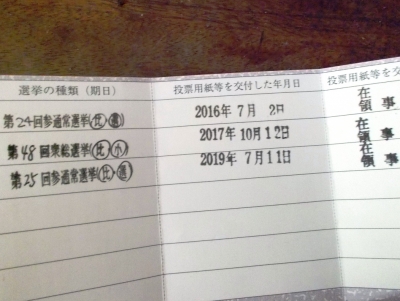 選挙の種類（期日） 投票用紙等を交付した年月日 投票用紙等を交
第24回参通常選挙(比・選) 2016年 7月 2日 在 領事
第48回衆総選挙(比・小) 2017年 10月 12日 在 領事
第25回参通常選挙(比・選) 2019年 7月 11日 在 領事